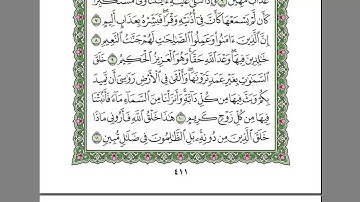 عَذَابٌ مُّهِينٌ ٦ وَإِذَا تُتْلَىٰ عَلَيْهِ ءَايَٰتُنَا وَلَّىٰ مُسْتَكْبِرًا
كَأَن لَّمْ يَسْمَعْهَا كَأَنَّ فِىٓ أُذُنَيْهِ وَقْرًا فَبَشِّرْهُ بِعَذَابٍ أَلِيمٍ ٧
إِنَّ ٱلَّذِينَ ءَامَنُوا۟ وَعَمِلُوا۟ ٱلصَّٰلِحَٰتِ لَهُمْ جَنَّٰتُ ٱلنَّعِيمِ ٨
خَٰلِدِينَ فِيهَا وَعْدَ ٱللَّهِ حَقًّا وَهُوَ ٱلْعَزِيزُ ٱلْحَكِيمُ ٩ خَلَقَ
ٱلسَّمَٰوَٰتِ بِغَيْرِ عَمَدٍ تَرَوْنَهَا وَأَلْقَىٰ فِى ٱلْأَرْضِ رَوَٰسِىَ أَن تَمِيدَ
بِكُمْ وَبَثَّ فِيهَا مِن كُلِّ دَآبَّةٍ وَأَنزَلْنَا مِنَ ٱلسَّمَآءِ مَآءً فَأَنۢبَتْنَا
فِيهَا مِن كُلِّ زَوْجٍ كَرِيمٍ ١٠ هَٰذَا خَلْقُ ٱللَّهِ فَأَرُونِى مَاذَا
خَلَقَ ٱلَّذِينَ مِن دُونِهِۦ بَلِ ٱلظَّٰلِمُونَ فِى ضَلَٰلٍ مُّبِينٍ ١١
٤١١